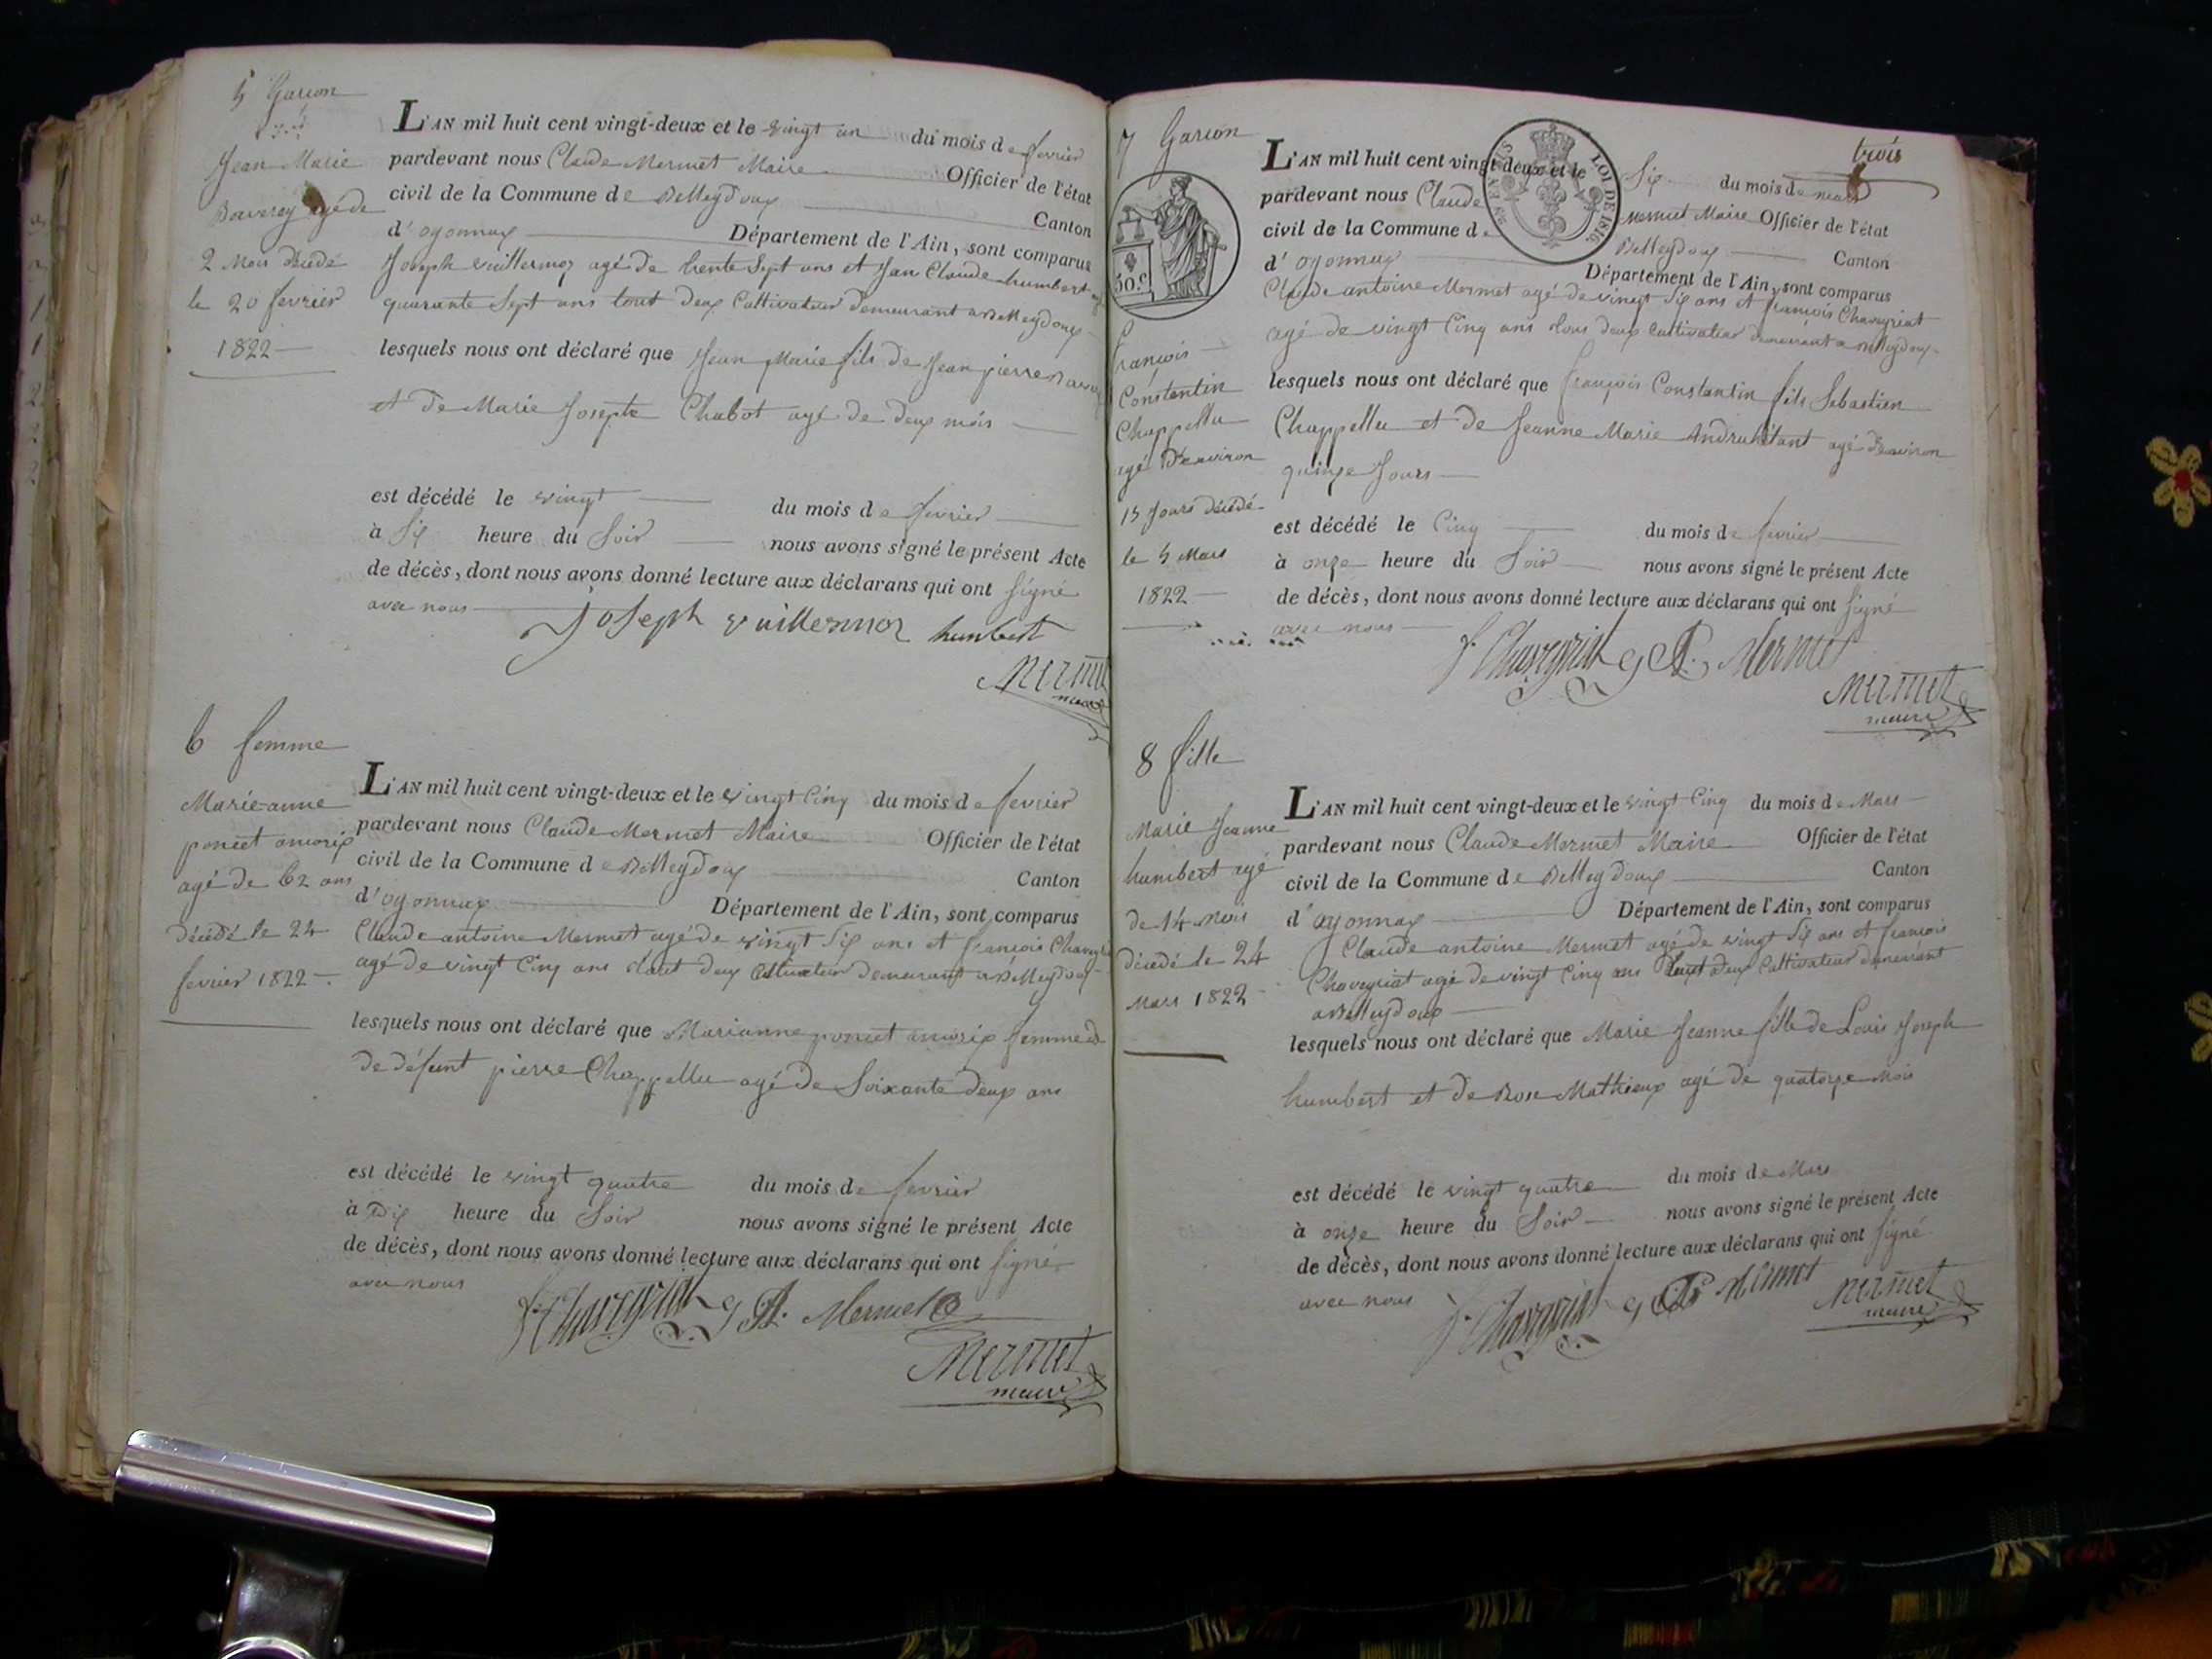 5 Garcon
Jean Marie
Baverey agé de
2 Mois décédé
le 20 fevrier
1822
L'AN mil huit cent vingt-deux et le vingt un du mois de fevrier
pardevant nous Claude Mermet Maire Officier de l'état
civil de la Commune de Belleydoux Canton
d'oyonnax Département de l'Ain, sont comparus
Joseph vuillermoz agé de trente Sept ans et Jean Claude humbert
quarante Sept ans tout deux Cultivateur demeurant a Belleydoux
lesquels nous ont déclaré que Jean Marie fils de Jean pierre
et de Marie Josepte Chabot agé de deux mois
est décédé le vingt du mois de fevrier
à Six heure du Soir nous avons signé le présent Acte
de décès, dont nous avons donné lecture aux déclarans qui ont Signé
avec nous
joseph vuillermoz humbert
Mermet
maire
6 femme
Marie-anne
poncet amorix
agé de 62 ans
décédé le 24
fevrier 1822
L'AN mil huit cent vingt-deux et le vingt Cinq du mois de fevrier
pardevant nous Claude Mermet Maire Officier de l'état
civil de la Commune de Belleydoux Canton
d'oyonnax Département de l'Ain, sont comparus
Claude antoine Mermet agé de vingt Six ans et francois
agé de vingt Cinq ans deux Cultivateur demeurant a Belleydoux
lesquels nous ont déclaré que Marianne poncet amorix femme
de défunt pierre Chappellu agé de Soixante deux ans
est décédé le vingt quatre du mois de fevrier
à Dix heure du Soir nous avons signé le présent Acte
de décès, dont nous avons donné lecture aux déclarans qui ont Signé
avec nous
f. Chaveyriat C A. Mermet
Mermet
maire
trois
7 Garcon
50 C.
LOI DE 1816.
françois
Constantin
Chappellu
agé D'environ
15 Jours décédé
le 5 Mars
1822
L'AN mil huit cent vingt-deux et le Six du mois de mars
pardevant nous Claude Mermet Maire Officier de l'état
civil de la Commune de Belleydoux Canton
d'oyonnax Département de l'Ain, sont comparus
Claude antoine Mermet agé de vingt Six ans et françois Chaveyriat
agé de vingt Cinq ans tous deux Cultivateur demeurant a Belleydoux
lesquels nous ont déclaré que françois Constantin fils Sebastien
Chappellu et de Jeanne Marie agé D'environ
quinze Jours
est décédé le Cinq du mois de fevrier
à onze heure du Soir nous avons signé le présent Acte
de décès, dont nous avons donné lecture aux déclarans qui ont Signé
avec nous
f. Chaveyriat C A. Mermet
Mermet
maire
8 fille
Marie Jeanne
humbert agé
de 14 mois
décédé le 24
Mars 1822
L'AN mil huit cent vingt-deux et le vingt Cinq du mois de Mars
pardevant nous Claude Mermet Maire Officier de l'état
civil de la Commune de Belleydoux Canton
d'oyonnax Département de l'Ain, sont comparus
Claude antoine Mermet agé de vingt Six ans et francois
Chaveyriat agé de vingt Cinq ans tout deux Cultivateur demeurant
a Belleydoux
lesquels nous ont déclaré que Marie Jeanne fille de Louis Joseph
humbert et de Rose Mathieux agé de quatorze mois
est décédé le vingt quatre du mois de Mars
à onze heure du Soir nous avons signé le présent Acte
de décès, dont nous avons donné lecture aux déclarans qui ont Signé
avec nous
f. Chaveyriat C A. Mermet
Mermet
maire